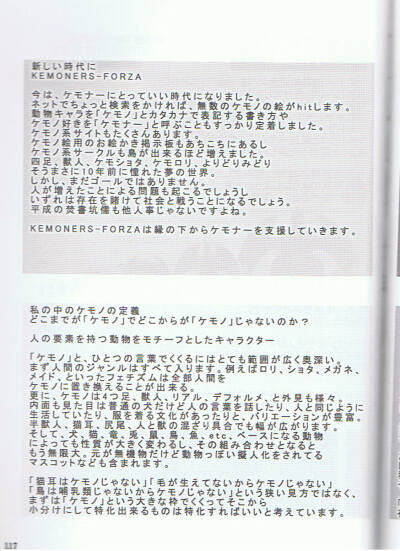 新しい時代に
KEMONERS-FORZA
今は、ケモナーにとっていい時代になりました。
ネットでちょっと検索をかければ、無数のケモノの絵がhitします。
動物キャラを「ケモノ」とカタカナで表記する書き方や
ケモノ好きを「ケモナー」と呼ぶこともすっかり定着しました。
ケモノ系サイトもたくさんあります。
ケモノ絵用のお絵かき掲示板もあちこちにあるし
ケモノ系サークルも島が出来るほど増えました。
四足、獣人、ケモショタ、ケモロリ、よりどりみどり
そうまさに10年前に憧れた夢の世界。
しかし、まだゴールではありません。
人が増えたことによる問題も起こるでしょうし
いずれは存在を賭けて社会と戦うことになるでしょう。
平成の焚書坑儒も他人事じゃないですよね。
KEMONERS-FORZAは縁の下からケモナーを支援していきます。
私の中のケモノの定義
どこまでが「ケモノ」でどこからが「ケモノ」じゃないのか？
人の要素を持つ動物をモチーフとしたキャラクター
「ケモノ」と、ひとつの言葉でくくるにはとても範囲が広く奥深い。
まず人間のジャンルはすべて入ります。例えばロリ、ショタ、メガネ、
メイド、といったフェチズムは全部人間を
ケモノに置き換えることが出来る。
更に、ケモノは4つ足、獣人、リアル、デフォルメ、と外見も様々。
内面も見た目は普通の犬だけど人の言葉を話したり、人と同じように
生活していたり、服を着る文化があったりと、バリエーションが豊富。
半獣人、猫耳、尻尾、人と獣の混ざり具合でも幅が広がります。
そして、犬、猫、竜、兎、鼠、鳥、魚、etc、ベースになる動物
によっても性質が大きく変わるし、その組み合わせとなると
もう無限大。元が無機物だけど動物っぽい擬人化をされてる
マスコットなども含まれます。
「猫耳はケモノじゃない」「毛が生えてないからケモノじゃない」
「鳥は哺乳類じゃないからケモノじゃない」という狭い見方ではなく、
まずは「ケモノ」という大きな枠でくくってそこから
小分けにして特化出来るものは特化すればいいと考えています。
117